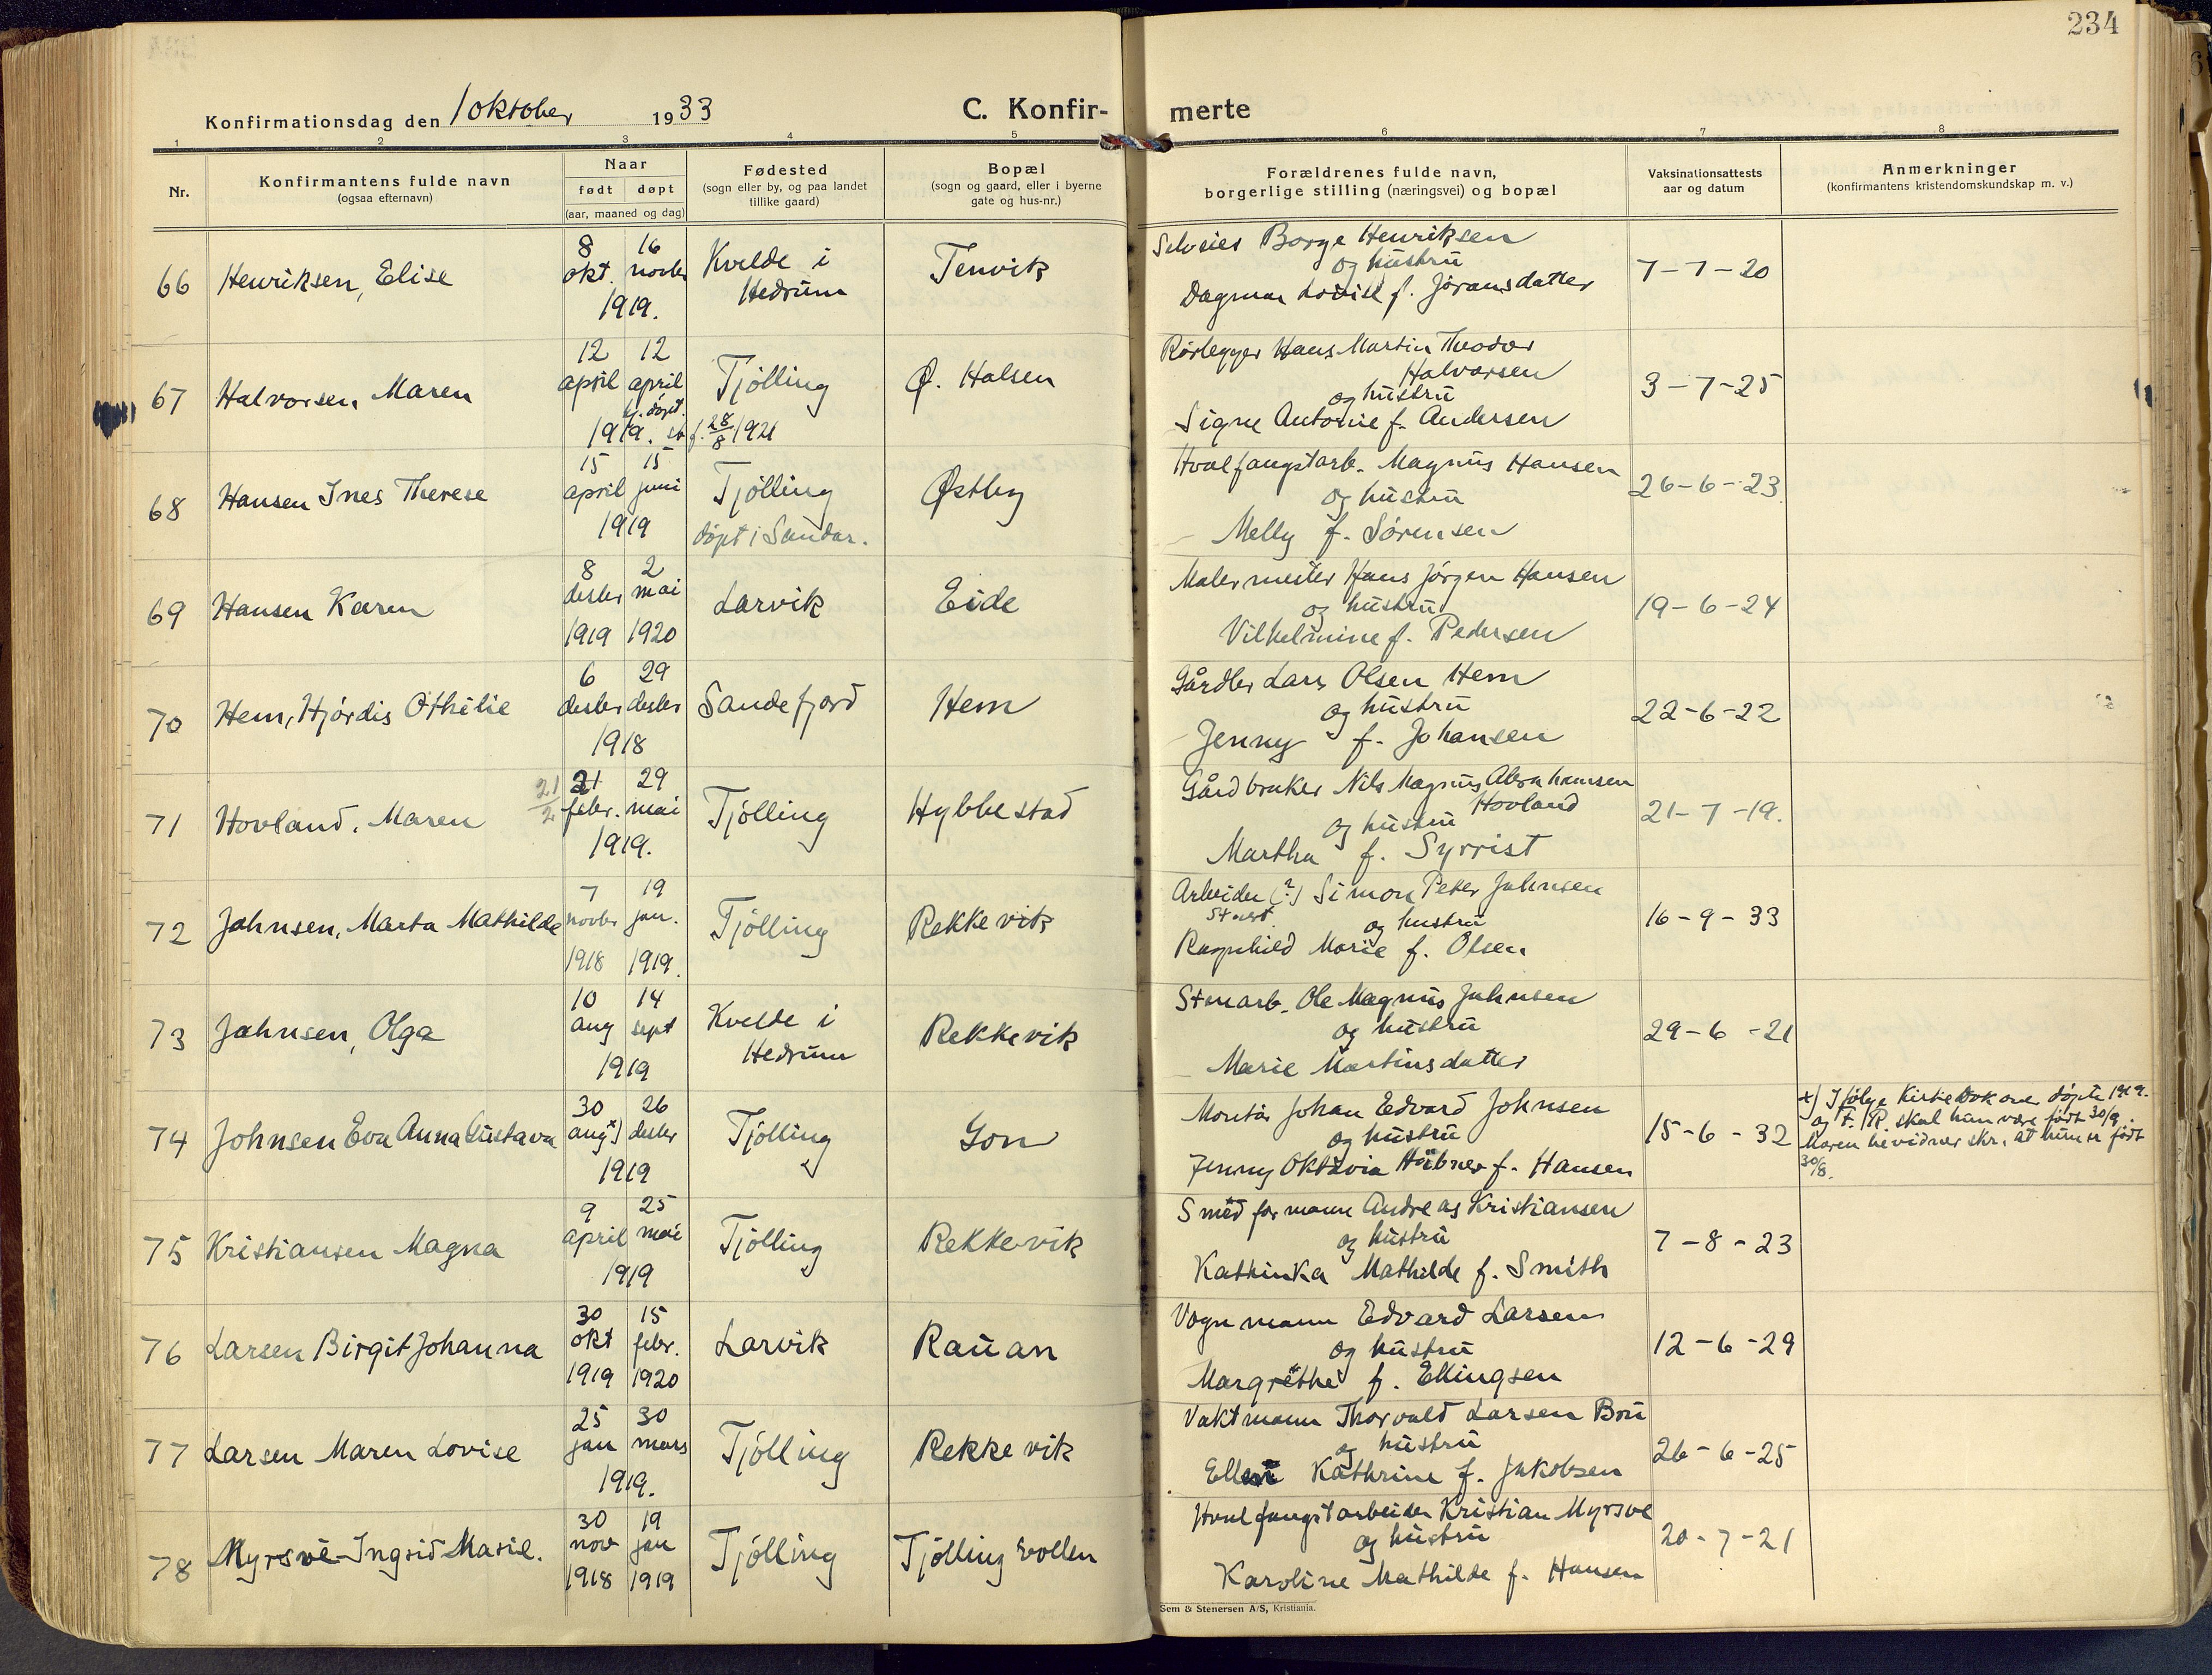 234
Konfirmationsdag den 1 oktober 1933
C. Konfir- merte
1 2 3 4 5 6 7 8
Nr.
Konfirmantens fulde navn
(ogsaa efternavn)
Naar
født døpt
(aar, maaned og dag)
Fødested
(sogn eller by, og paa landet
tillike gaard)
Bopæl
(sogn og gaard, eller i byerne
gate og hus-nr.)
Forældrenes fulde navn,
borgerlige stilling (næringsvei) og bopæl
Vaksinationsattests
aar og datum
Anmerkninger
(konfirmantens kristendomskundskap m. v.)
66 Henriksen, Elise
8 okt. 16 novbr
1919.
Kvelde i
Hedrum
Tenvik
Selveier Borge Henriksen
og hustru
Dagmar Lovise f. Jøransdatter
7-7-20
67 Halvorsen, Maren
12 april 12 april
1919. st f. 28/8 1921
Tjølling
Ø. Halsen
Rørlegger Hans Martin Theodor
Halvorsen
og hustru
Signe Antonie f. Andersen
3-7-25
68 Hansen Ines Therese
15 april 15 juni
1919
Tjølling
døpt i Sandar.
Østby
Hvalfangstarb. Magnus Hansen
og hustru
Melly f. Sørensen
26-6-23
69 Hansen Karen
8 desbr 2 mai
1919 1920
Larvik
Eide
Malermester Hans Jørgen Hansen
og hustru
Vilhelmine f. Pedersen
19-6-24
70 Hem, Hjørdis Othilie
6 desbr 29 desbr
1918
Sandefjord
Hem
Gårdbr Lars Olsen Hem
og hustru
Jenny f. Johansen
22-6-22
71 Hovland, Maren
21/2
21 febr. 29 mai
1919.
Tjølling
Hybbestad
Gårdbruker Nils Magnus Abrahamsen
Hovland
og hustru
Martha f. Syrrist
21-7-19.
72 Jahnsen, Marta Mathilde
7 novbr 19 jan.
1918 1919.
Tjølling
Rekkevik
Arbeider (?) Simon Peter Jahnsen
og hustru
Ragnhild Marie f. Olsen
16-9-33
73 Jahnsen, Olga
10 aug 14 sept
1919
Kvelde i
Hedrum
Rekkevik
Stenarb. Ole Magnus Jahnsen
og hustru
Marie Martinsdatter
29-6-21
74 Johnsen Eva Anna Gustava
30 aug x) 26 desbr
1919
Tjølling
Gon
Montør Johan Edvard Johnsen
og hustru
Jenny Oktavia Hübner f. Hansen
15-6-32
x) Ifølge Kirkebok over døpte 1919.
og F. R. skal hun være født 30/9.
Moren bevidner skr. at hun er født
30/8.
75 Kristiansen Magna
9 april 25 mai
1919
Tjølling
Rekkevik
Smedformann Andreas Kristiansen
og hustru
Kathinka Mathilde f. Smith
7-8-23
76 Larsen Birgit Johanna
30 okt 15 febr.
1919 1920
Larvik
Rauan
Vognmann Edvard Larsen
og hustru
Margrethe f. Ellingsen
12-6-29
77 Larsen Maren Lovise
25 jan 30 mars
1919.
Tjølling
Rekkevik
Vaktmann Thorvald Larsen Bru
og hustru
Ellen Kathrine f. Jakobsen
26-6-25
78 Myrsve Ingrid Marie.
30 nov 19 jan
1918 1919
Tjølling
Tjølling vollen
Hvalfangstarbeider Kristian Myrsve
og hustru
Karoline Mathilde f. Hansen
20-7-21
Sem & Stenersen A/S, Kristiania.